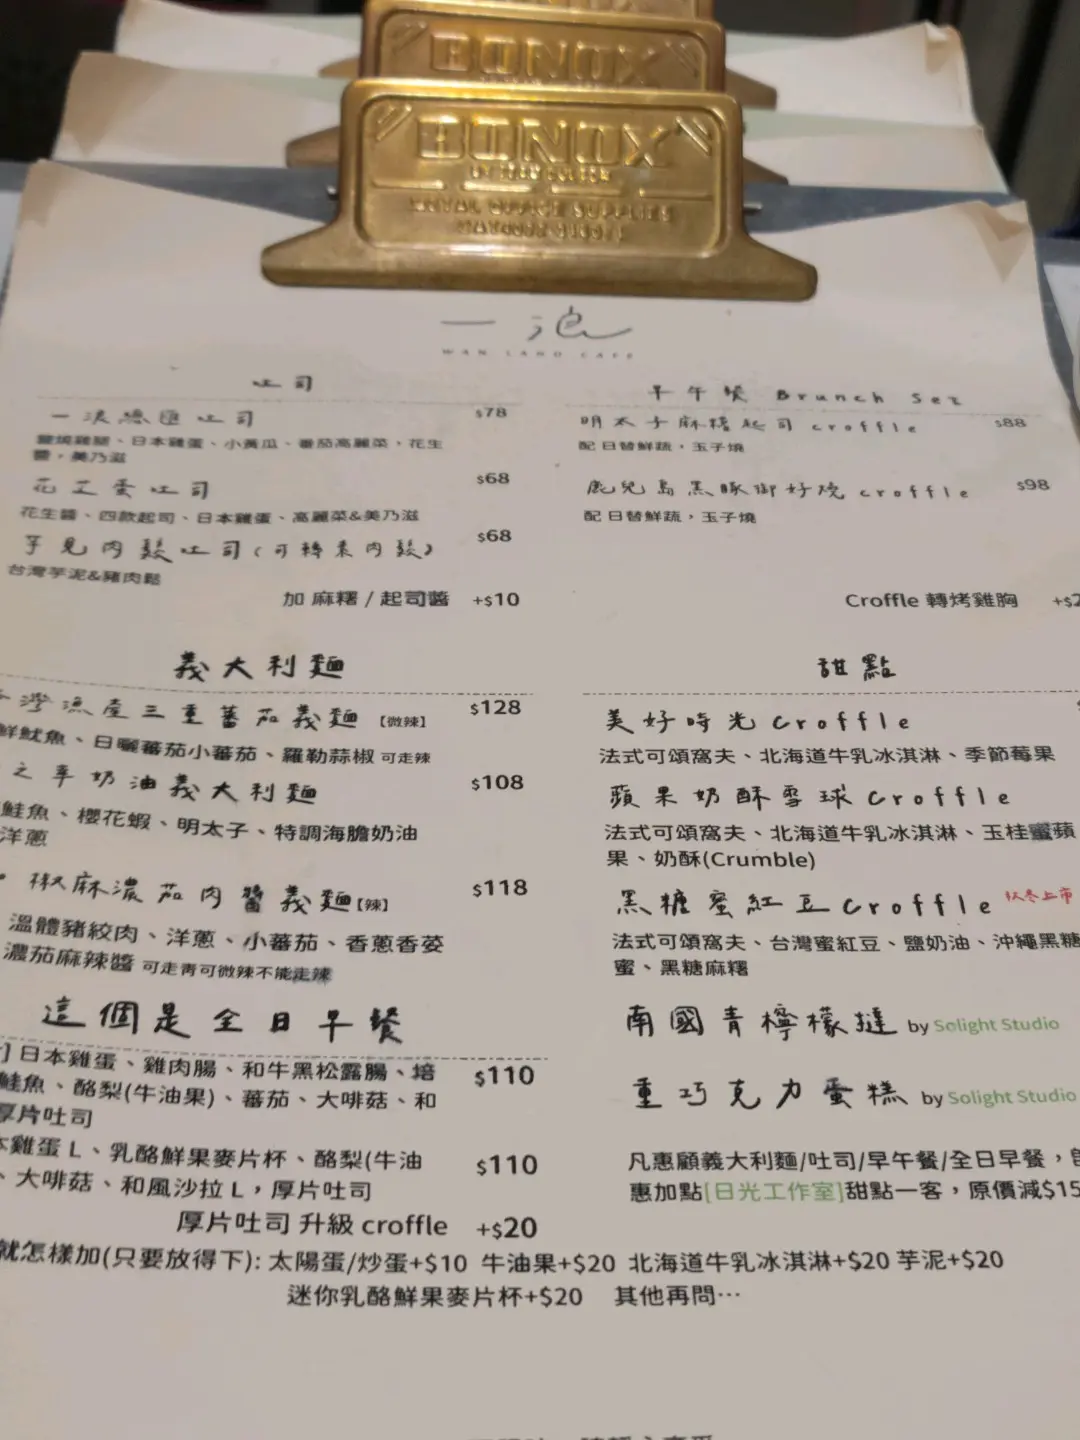 BONOX
BONOX
METAL OFFICE SUPPLIES
一浪
WAN LAND CAFE
吐司
一浪總匯吐司 $78
鹽燒雞腿、日本雞蛋、小黃瓜、番茄高麗菜,花生
醬,美乃滋
花芝蛋吐司 $68
花生醬、四款起司、日本雞蛋、高麗菜&美乃滋
芋見肉鬆吐司(可轉素肉鬆) $68
台灣芋泥&豬肉鬆
加 麻糬 / 起司醬 +$10
早午餐 Brunch Set
明太子麻糬起司 croffle $88
配 日替鮮蔬,玉子燒
鹿兒島黑豚御好燒 croffle $98
配 日替鮮蔬,玉子燒
Croffle 轉烤雞胸
義大利麵
灣漁產三重蕃茄義麵【微辣】 $128
鮮魷魚、日曬蕃茄小蕃茄、羅勒蒜椒 可走辣
之幸奶油義大利麵 $108
鮭魚、櫻花蝦、明太子、特調海膽奶油
洋蔥
椒麻濃茄肉醬義麵【辣】 $118
溫體豬絞肉、洋蔥、小蕃茄、香蔥香荽
濃茄麻辣醬 可走青可微辣不能走辣
甜點
美好時光 Croffle
法式可頌窩夫、北海道牛乳冰淇淋、季節莓果
蘋果奶酥雪球 Croffle
法式可頌窩夫、北海道牛乳冰淇淋、玉桂蜜蘋
果、奶酥(Crumble)
黑糖蜜紅豆 Croffle 秋冬上市
法式可頌窩夫、台灣蜜紅豆、鹽奶油、沖繩黑糖
蜜、黑糖麻糬
南國青檸檬撻 by Solight Studio
重巧克力蛋糕 by Solight Studio
這個是全日早餐
] 日本雞蛋、雞肉腸、和牛黑松露腸、培 $110
鮭魚、酪梨(牛油果)、蕃茄、大啡菇、和
厚片吐司
本雞蛋 L、乳酪鮮果麥片杯、酪梨(牛油 $110
、大啡菇、和風沙拉 L,厚片吐司
厚片吐司 升級 croffle +$20
凡惠顧義大利麵/吐司/早午餐/全日早餐,
惠加點[日光工作室]甜點一客,原價減$15
就怎樣加(只要放得下): 太陽蛋/炒蛋+$10 牛油果+$20 北海道牛乳冰淇淋+$20 芋泥+$20
迷你乳酪鮮果麥片杯+$20 其他再問⋯